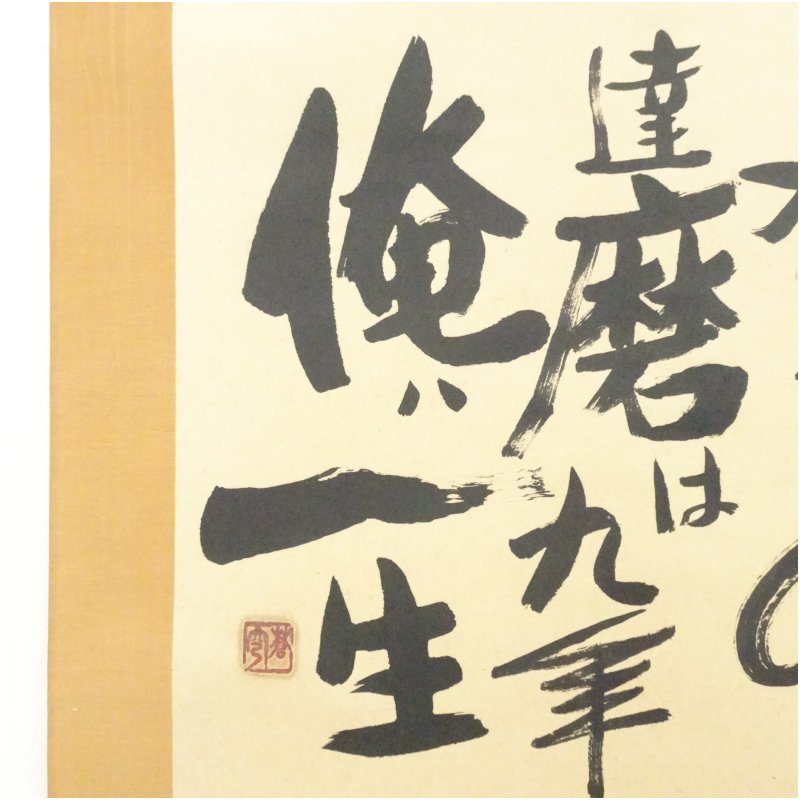 達磨は九年
俺ハ一生